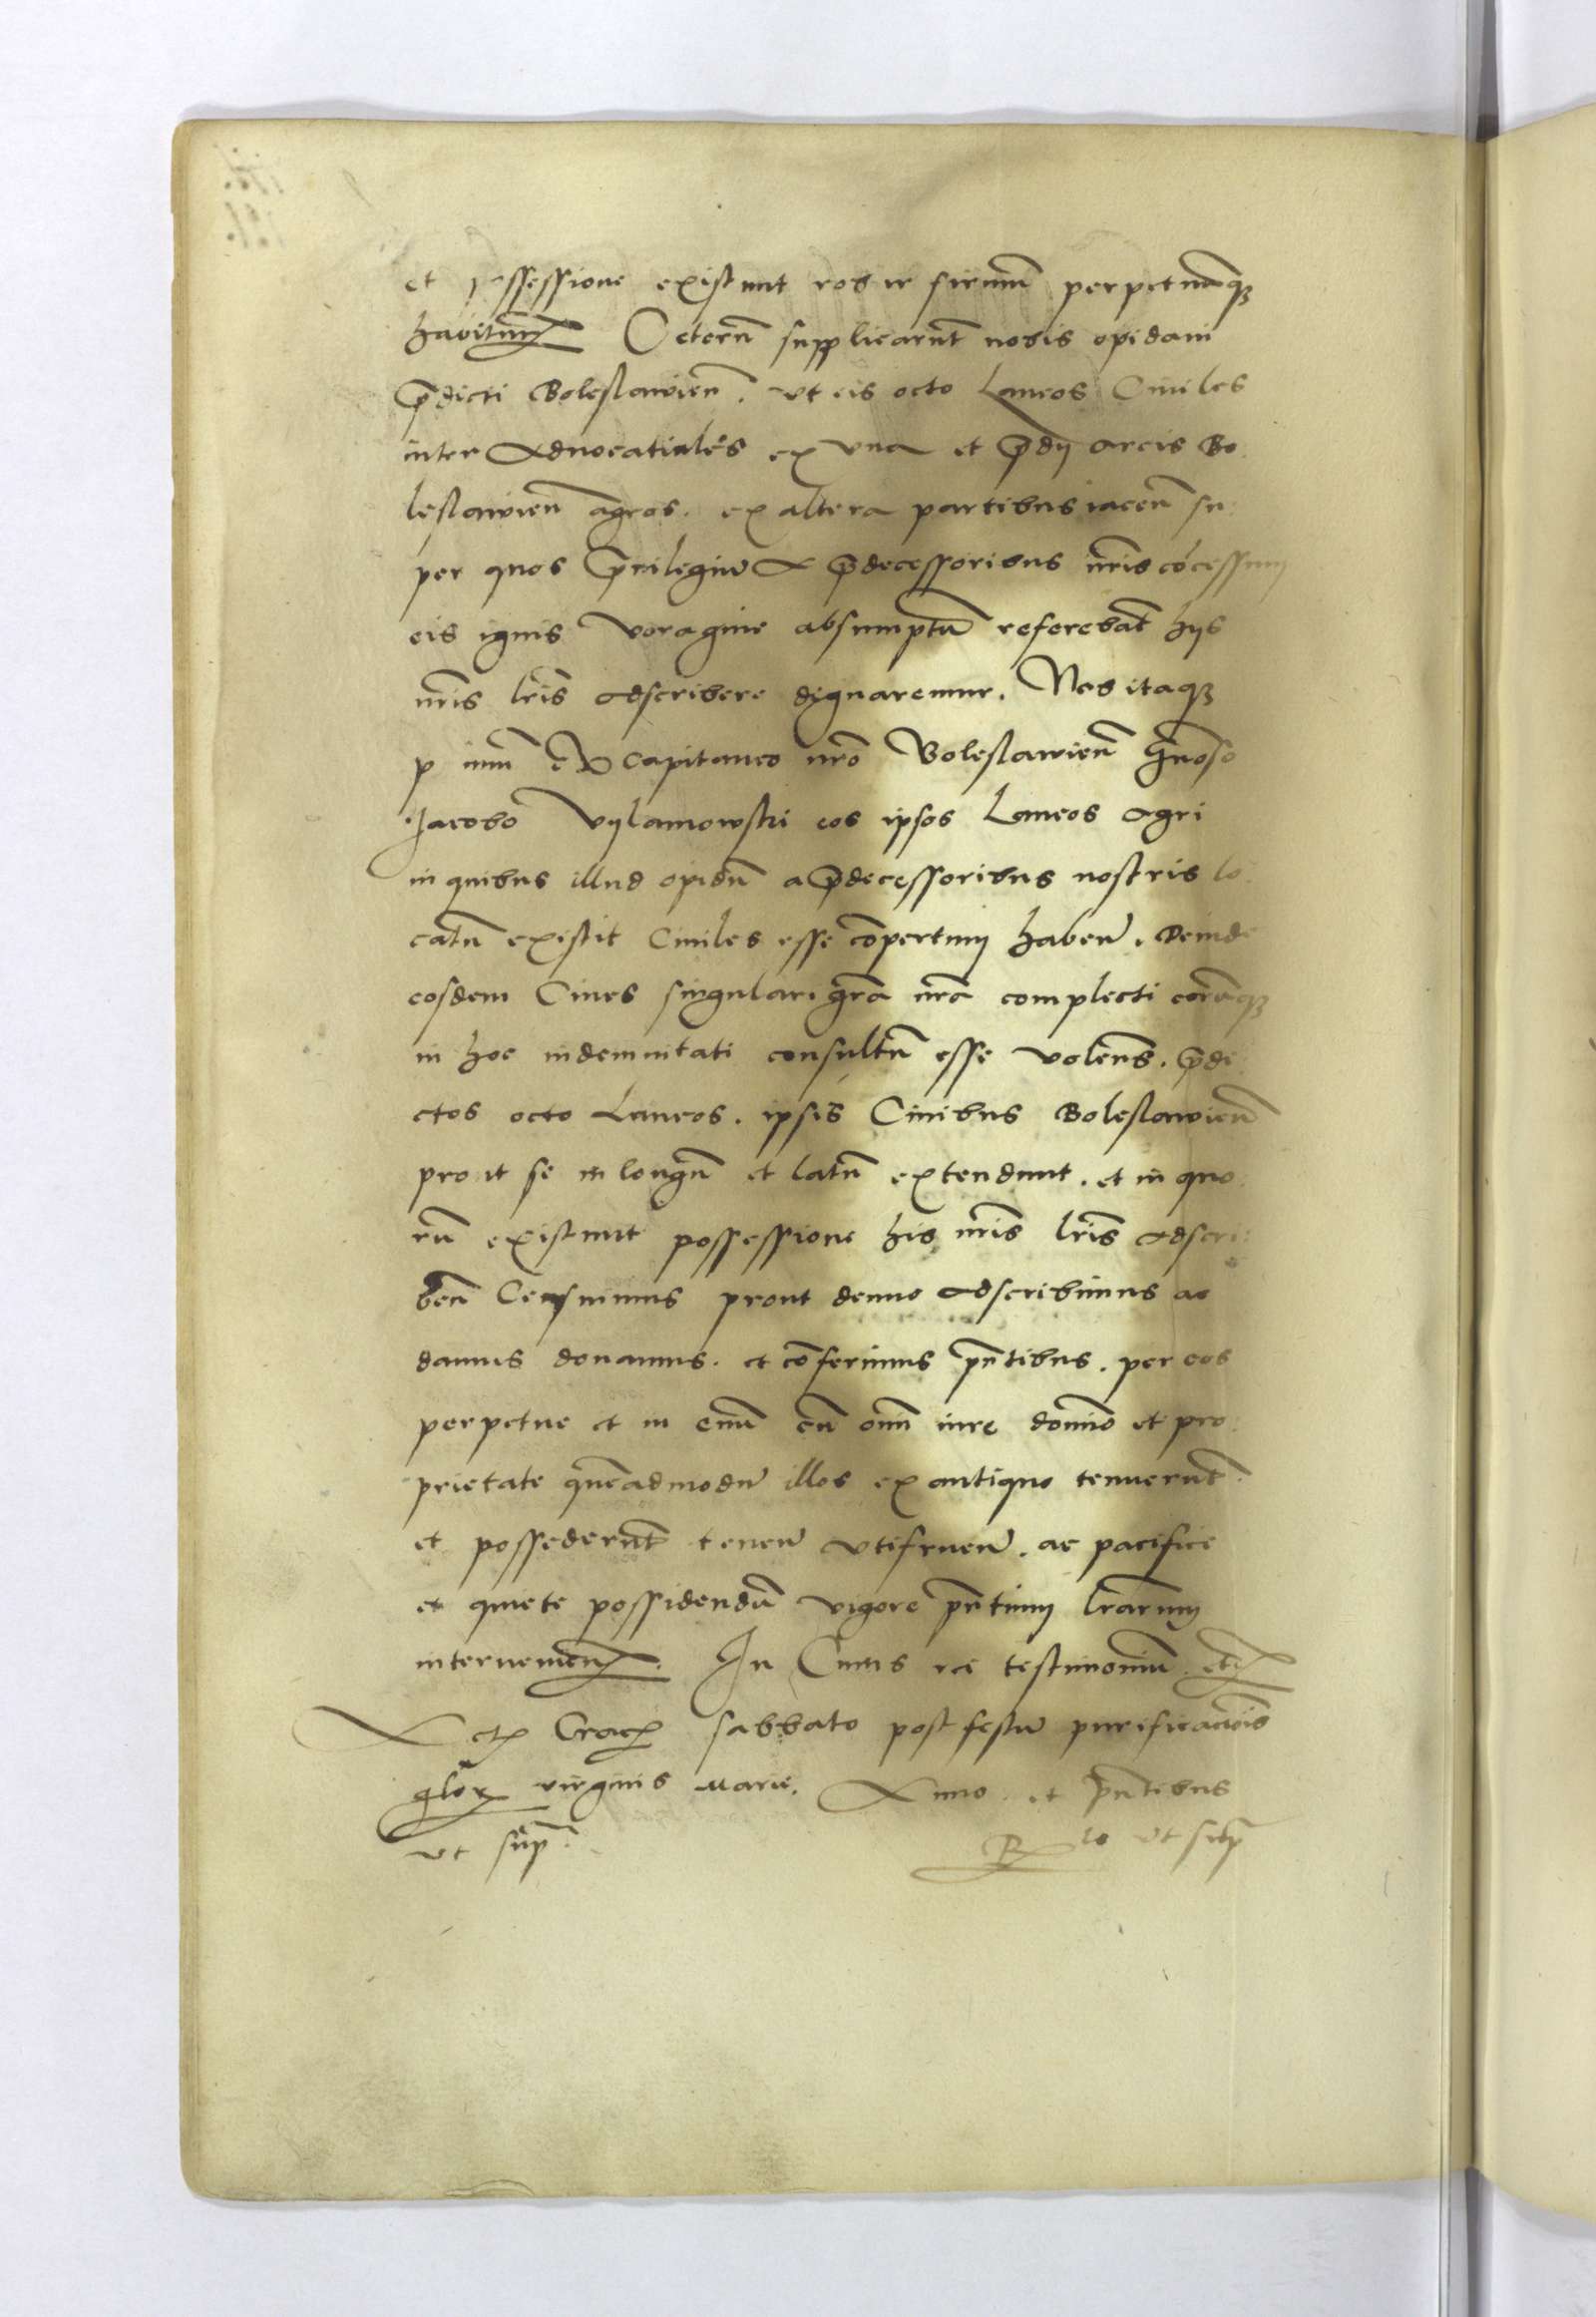 et possessione existunt robur firmum perpetuumq;
habitur. Ceterũ supplicarũt nobis opidani
p̃dicti Boleslawieñ. vt eis octo Laneos Ciuiles
inter Aduocatiales ex vna et p̃dij arcis Bo
leslawieñ agros. ex altera partibus iaceñ su
per quos p̃uilegiũ A p̃decessoribus nr̃is cõcessum
eis ignis voragine absumptũ referebãt hijs
nr̃is lr̃is adscribere dignaremur. Nos itaq;
capitaneo nr̃o Boleslawieñ Gñoso
Jacobo Vylamowski eos ipsos Laneos agri
in quibus illud opidũ a p̃decessoribus nostris lo
catũ existit Ciuiles esse cõpertum habeñ. Deinde
eosdem Ciues singulari gr̃a nr̃a complecti eorũq;
in hoc indemnitati consultũ esse voleñs. p̃di
ctos octo Laneos. ipsis Ciuibus Boleslawieñ
prout se in longũ et latũ extendunt. et in quo
rũ existunt possessione his nr̃is lr̃is adscri
beñ Censuimus prout denuo adscribimus ac
damus donamus. et cõferimus pñtibus. per eos
perpetue et in euũ cũ oĩ iure domĩo et pro
prietate quẽadmodũ illos ex antiquo tenuerũt
et possederũt teneñ vtifrueñ. ac pacifice
et quiete possidendũ vigore pñtium lr̃arum
interuenien. In Cuius rei testimoniũ etc
Act Crac sabbato post festũ purificacõis
glor virginis Marie. Anno. et pñtibus
vt sup̃. Rlo vt sup̃